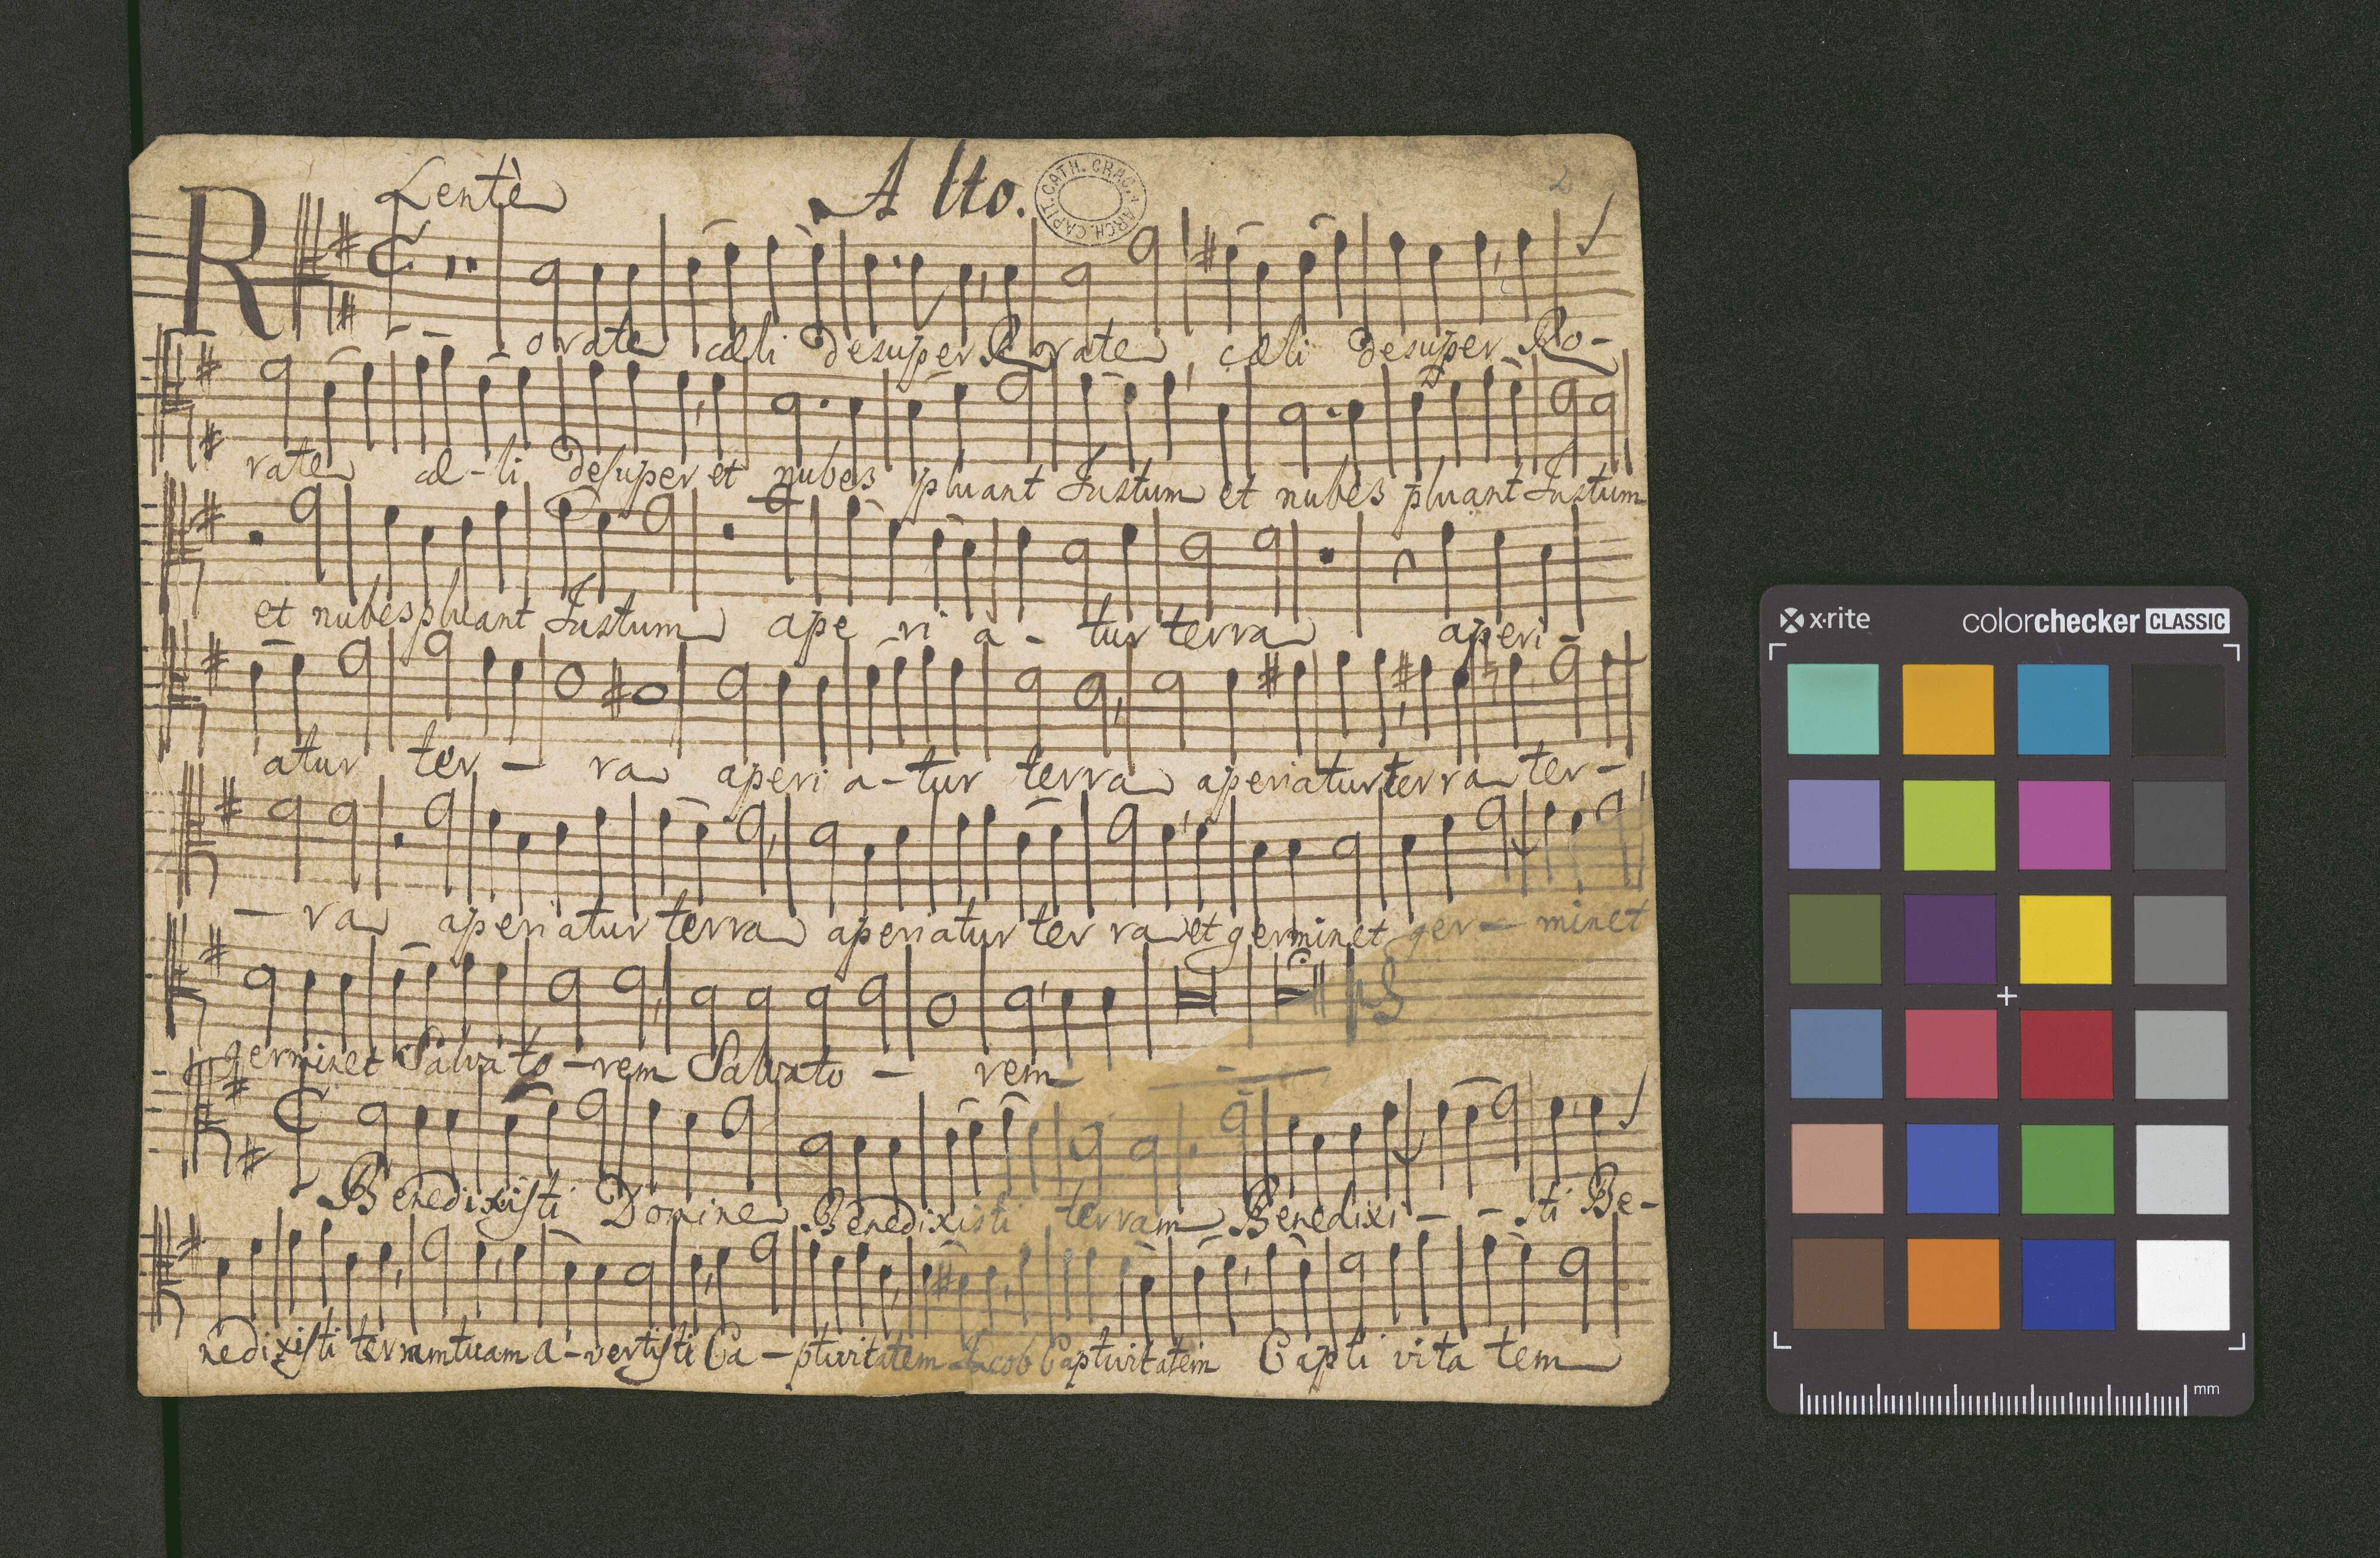 Lentè Alto. 2
CAPIT. CATH. CRAC. ARCH.
R - - orate cæli Desuper Rorate cæli desuper Ro-
rate cæ-li Desuper et nubes pluant Justum et nubes pluant Justum
et nubes pluant Justum ape ri a - tur terra aperi-
atur ter - ra aperi a-tur terra aperiatur terra ter-
- ra aperiatur terra aperiatur ter ra et germinet ger - minet
germinet Salvato-rem Salvato - rem
Benedixisti Domine Benedixisti terram Benedixi - - sti Be-
nedixisti terram tuam a-vertisti Ca-ptivitatem Jacob Captivitatem Capti vita tem
x·rite colorchecker CLASSIC
mm